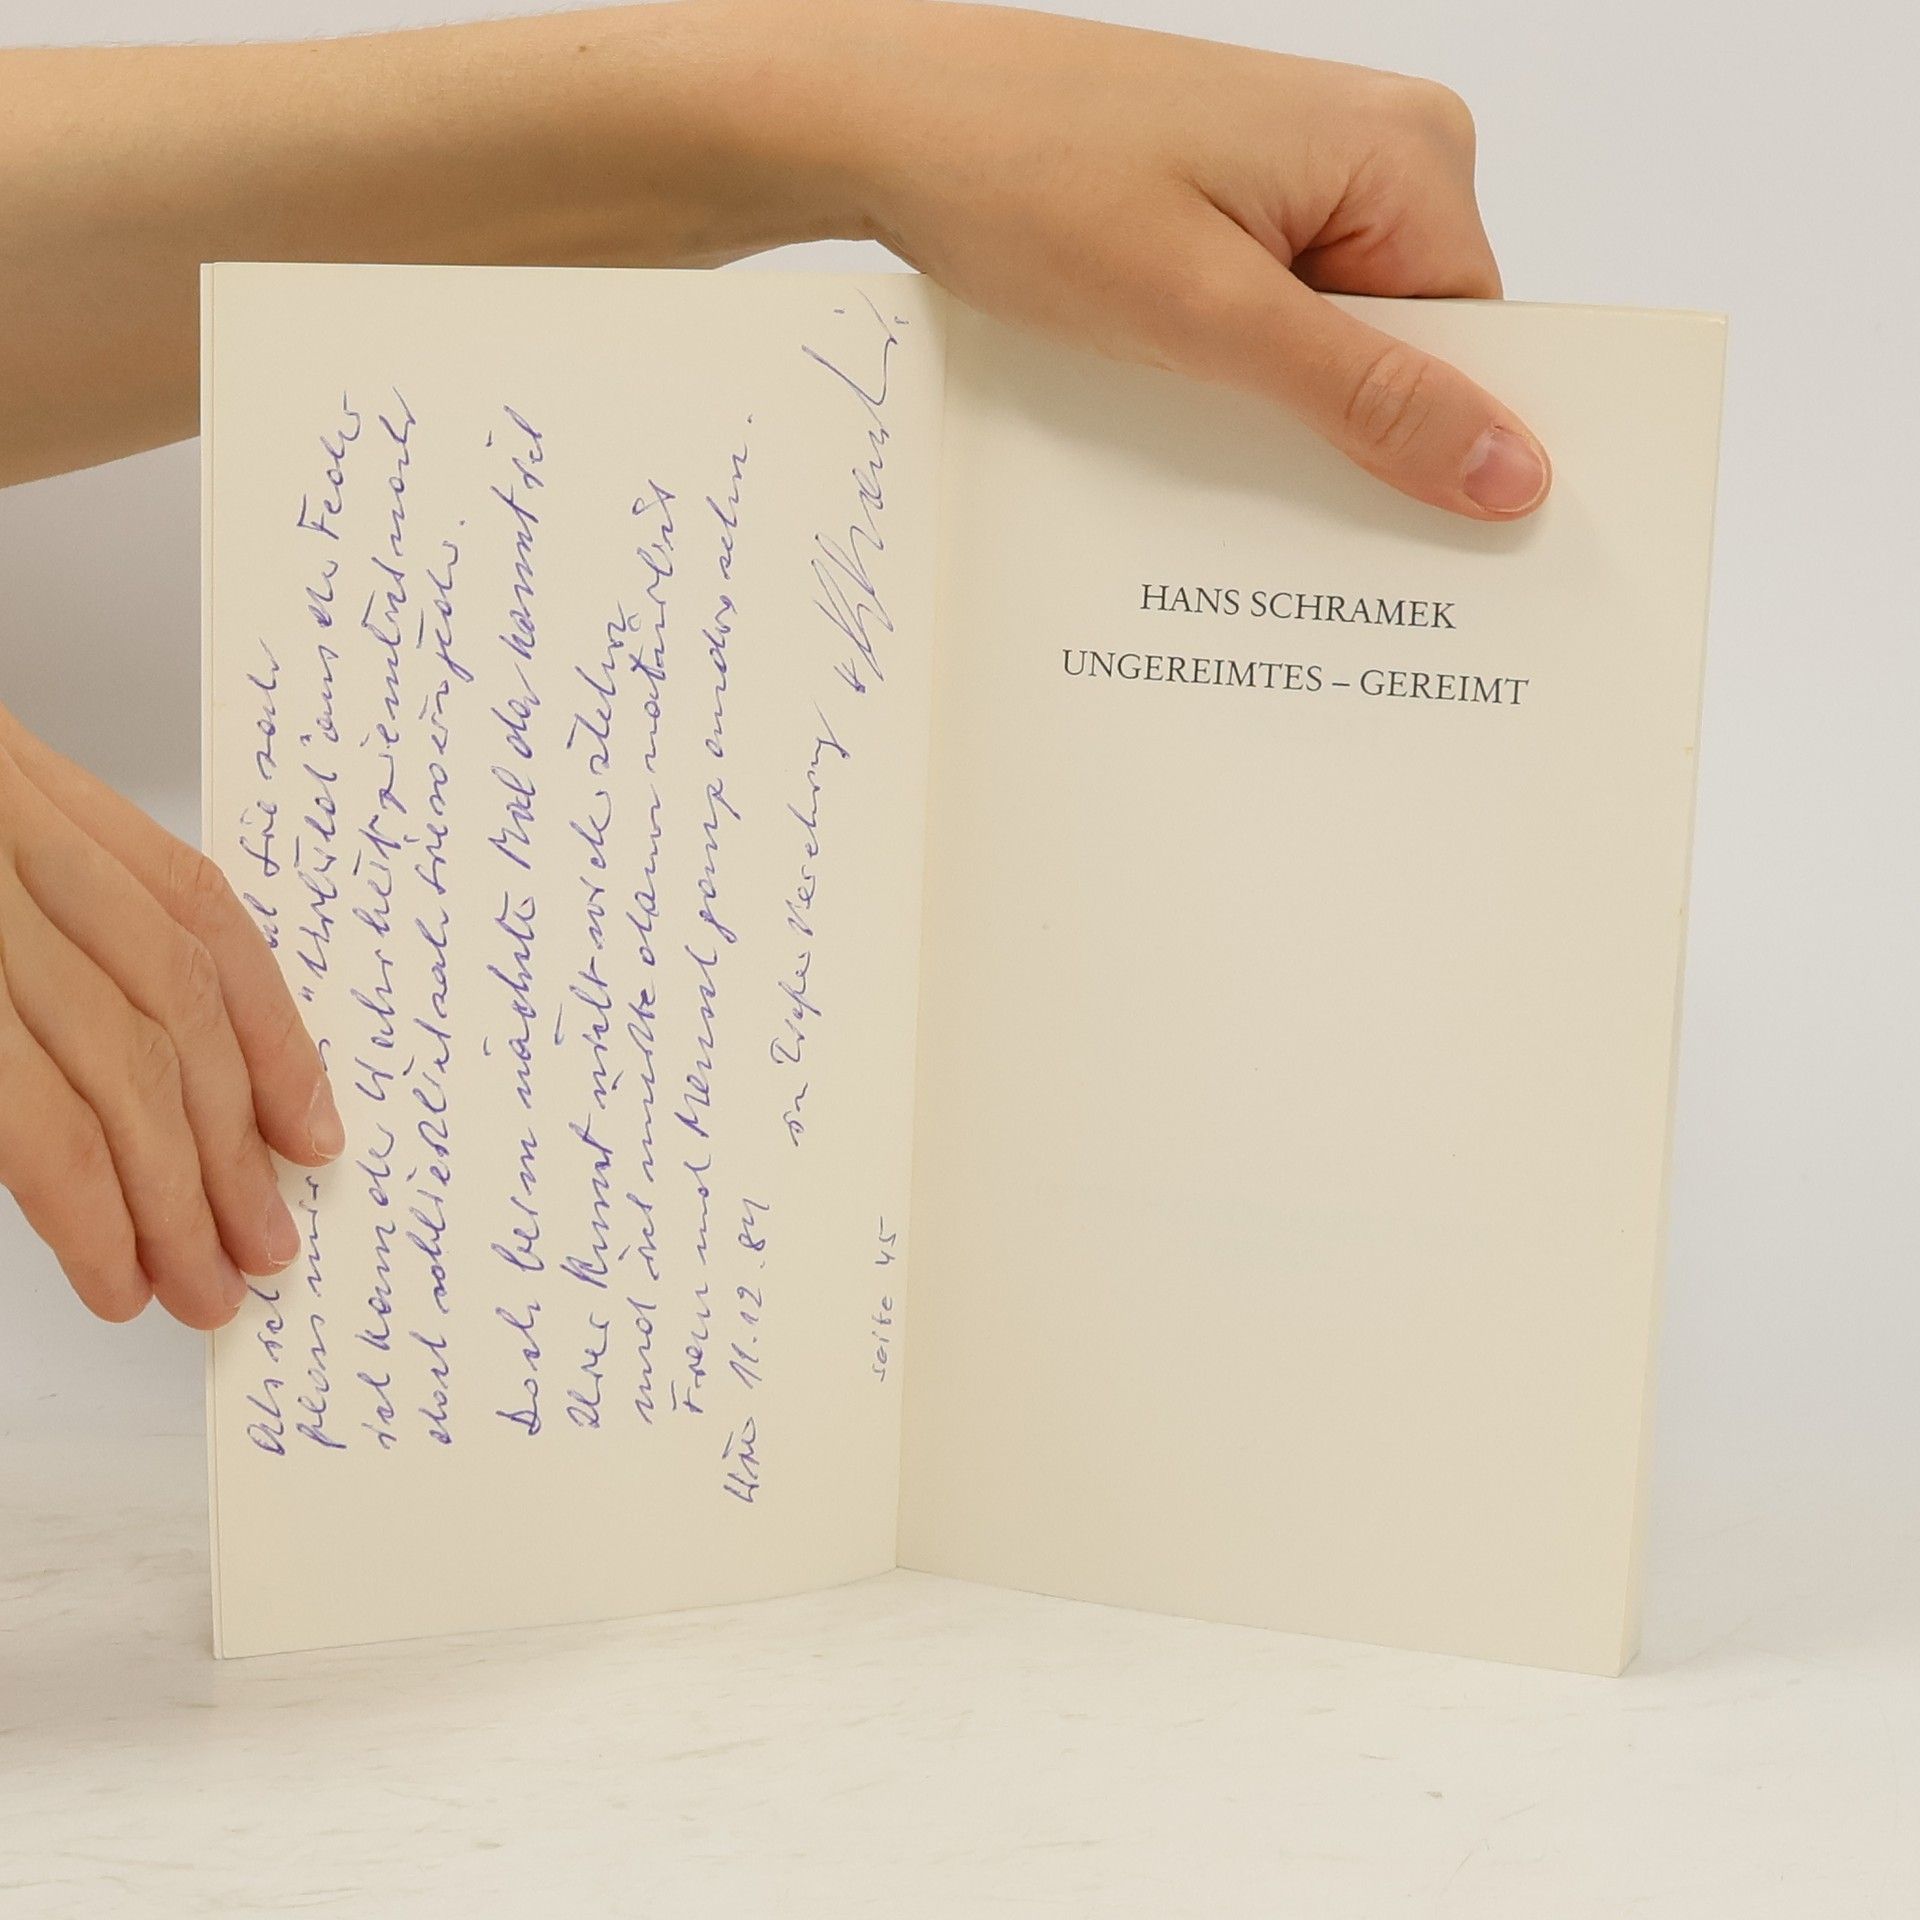 Als ich Sie sah
"Urbild" aus der Feder
ich kam der Wahrheit ziemlich nah
doch schließlich sah Sie so ein jeder.
Doch beim nächsten Mal da konnt ich
Ihrer Kunst nicht widerstehen
und ich mußte dann natürlich
Frau und Mensch ganz anders sehn.
Wien 11.12.84 in Verehrung
Seite 45
HANS SCHRAMEK
UNGEREIMTES – GEREIMT